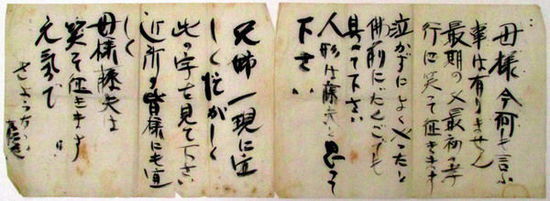 母様 今何も言ふ
事は有りません
最期の又最初の孝
行に笑って征きます
泣かずによくやったと
佛前にだんごでも
具へて下さい
人形は藤夫と思って
下さい
兄姉一現に宜
しく忙がしく
此の字を見て下さい
近所の皆様にも宜
しく
母様藤夫は
笑って征きます
元気で
さようなら